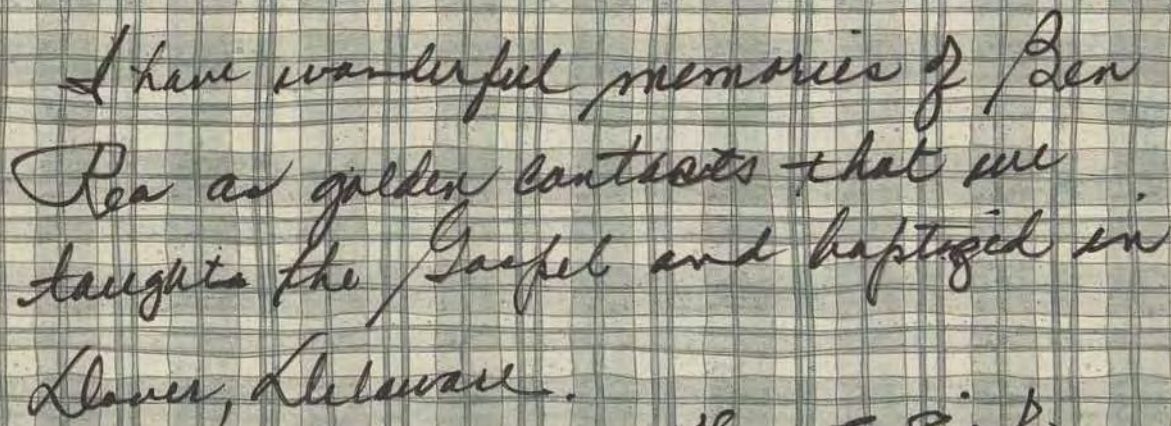 I have wonderful memories of Ben
Rea as golden contacts that we
taught the Gospel and baptized in
Dover, Delaware.